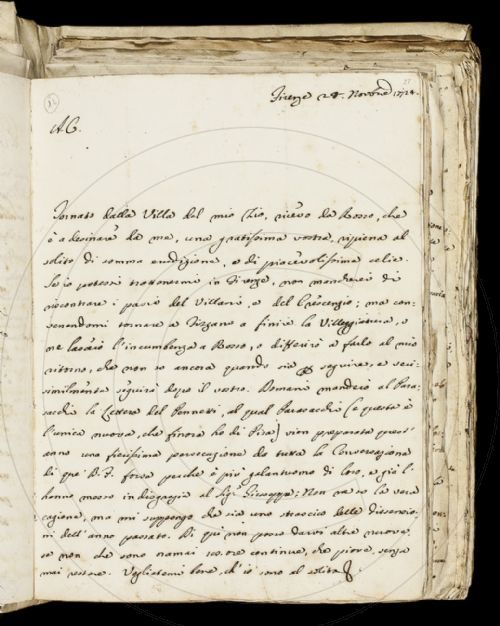 27
Firenze 28. Novbre 1724.
A C.
Tornato dalla Villa del mio Zio, ricevo da Bosso, che
è a desinare da me, una gratissima vostra, ripiena al
solito di somma erudizione, e di piacevolissime celie.
Se io potessi trattenermi in Firenze, non mancherei di
riscontrare i passi del Villani, e del Crescenzio; ma con-
venendomi tornare a a finire la Villeggiatura, o
ne lascio l'incumbenza a Bosso, o differirò a farlo al mio
ritorno, che non so ancora quando sia per seguire, e veri-
similmente seguirà dopo il vostro. Domani manderò al Para-
la Lettera del al qual (e questa è
l'unica nuova, che finora ho di Pisa) vien preparata quest'
anno una fierissima persecuzione da tutta la Conversazione
di que' B. F. forse perché è più galantuomo di loro, e già l'
hanno messo in disgrazia al Sigr Giuseppe: Non ne so la vera
cagione, ma mi suppongo che sia uno straccio delle dissensio-
ni dell'anno passato. Di qui non posso darvi altre nuove
se non che sono ormai continue, che piove, senza
mai restare. Vogliatemi bene, ch'io sono al solito